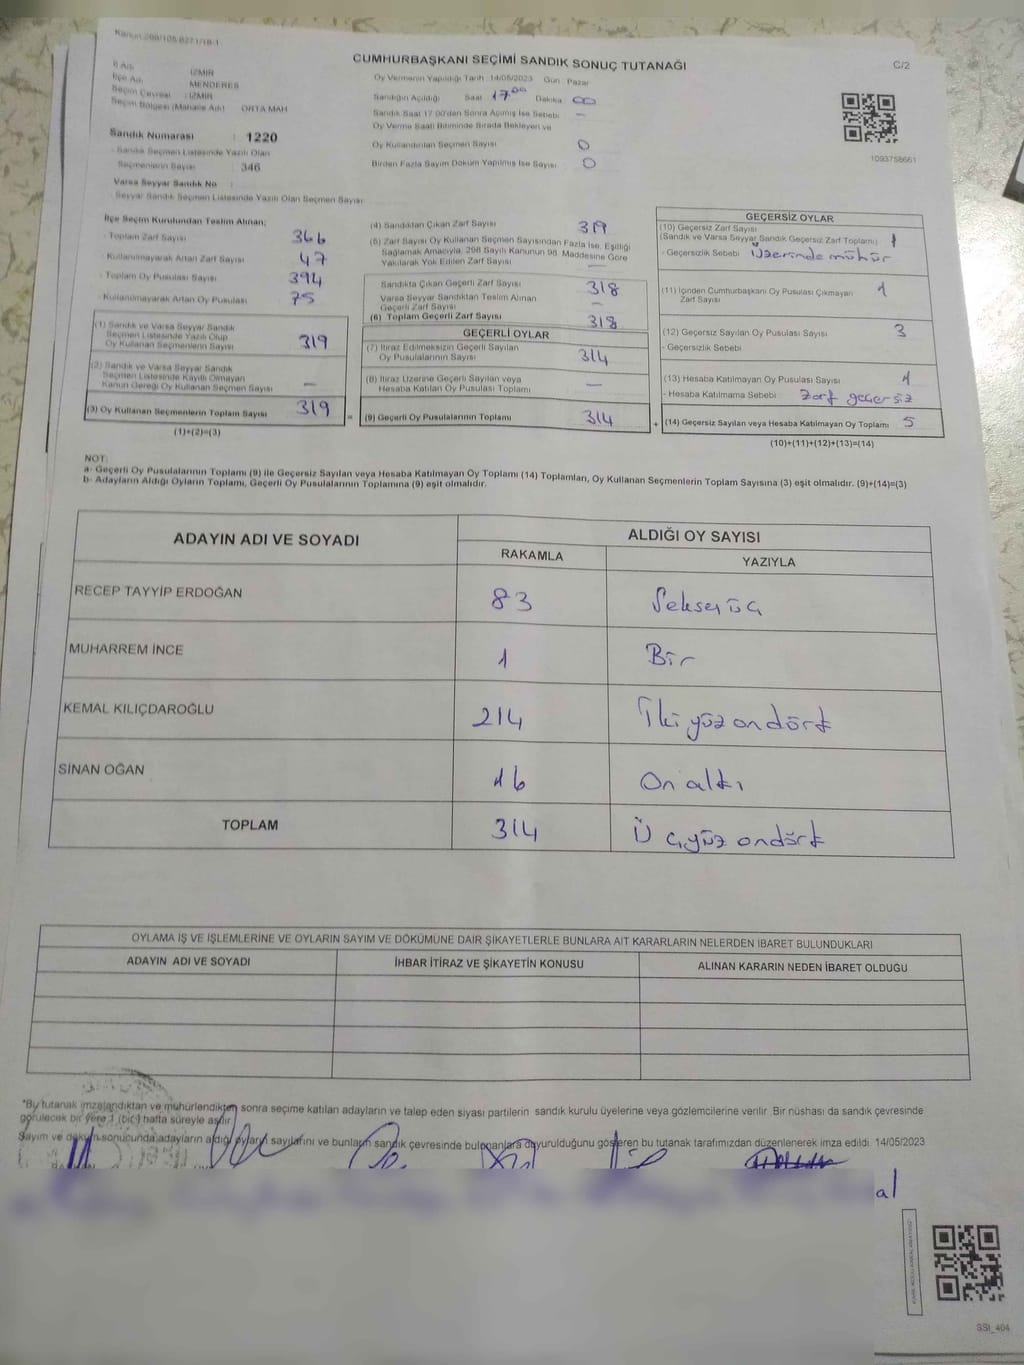 Kanun:298/105.8271/18-1
CUMHURBAŞKANI SEÇİMİ SANDIK SONUÇ TUTANAĞI
C/2
İl Adı : İZMİR
İlçe Adı : MENDERES
Seçim Çevresi : İZMİR
Seçim Bölgesi (Mahalle Adı) ORTA MAH
Sandık Numarası : 1220
- Sandık Seçmen Listesinde Yazılı Olan
Seçmenlerin Sayısı : 346
Varsa Seyyar Sandık No :
- Seyyar Sandık Seçmen Listesinde Yazılı Olan Seçmen Sayısı
Oy Vermenin Yapıldığı Tarih :14/05/2023 Gün : Pazar
Sandığın Açıldığı Saat 17.00 Dakika 00
Sandık Saat 17:00'den Sonra Açılmış İse Sebebi –
Oy Verme Saati Bitiminde Sırada Bekleyen ve
Oy Kullandırılan Seçmen Sayısı 0
Birden Fazla Sayım Döküm Yapılmış İse Sayısı 0
1093758661
İlçe Seçim Kurulundan Teslim Alınan;
- Toplam Zarf Sayısı 366
- Kullanılmayarak Artan Zarf Sayısı 47
- Toplam Oy Pusulası Sayısı 394
- Kullanılmayarak Artan Oy Pusulası 75
(1) Sandık ve Varsa Seyyar Sandık
Seçmen Listesinde Yazılı Olup
Oy Kullanan Seçmenlerin Sayısı 319
(2) Sandık ve Varsa Seyyar Sandık
Seçmen Listesinde Kayıtlı Olmayan
Kanun Gereği Oy Kullanan Seçmen Sayısı –
(3) Oy Kullanan Seçmenlerin Toplam Sayısı 319
(1)+(2)=(3)
(4) Sandıktan Çıkan Zarf Sayısı 319
(5) Zarf Sayısı Oy Kullanan Seçmen Sayısından Fazla İse, Eşitliği
Sağlamak Amacıyla, 298 Sayılı Kanunun 98. Maddesine Göre
Yakılarak Yok Edilen Zarf Sayısı –
Sandıkta Çıkan Geçerli Zarf Sayısı 318
Varsa Seyyar Sandıktan Teslim Alınan
Geçerli Zarf Sayısı –
(6) Toplam Geçerli Zarf Sayısı 318
GEÇERLİ OYLAR
(7) İtiraz Edilmeksizin Geçerli Sayılan
Oy Pusulalarının Sayısı 314
(8) İtiraz Üzerine Geçerli Sayılan veya
Hesaba Katılan Oy Pusulası Toplamı –
= (9) Geçerli Oy Pusulalarının Toplamı 314
GEÇERSİZ OYLAR
(10) Geçersiz Zarf Sayısı
(Sandık ve Varsa Seyyar Sandık Geçersiz Zarf Toplamı) 1
- Geçersizlik Sebebi Üzerinde mühür
(11) İçinden Cumhurbaşkanı Oy Pusulası Çıkmayan
Zarf Sayısı 1
(12) Geçersiz Sayılan Oy Pusulası Sayısı 3
- Geçersizlik Sebebi
(13) Hesaba Katılmayan Oy Pusulası Sayısı 1
- Hesaba Katılmama Sebebi Zarf geçersiz
+ (14) Geçersiz Sayılan veya Hesaba Katılmayan Oy Toplamı 5
(10)+(11)+(12)+(13)=(14)
NOT:
a- Geçerli Oy Pusulalarının Toplamı (9) ile Geçersiz Sayılan veya Hesaba Katılmayan Oy Toplamı (14) Toplamları, Oy Kullanan Seçmenlerin Toplam Sayısına (3) eşit olmalıdır. (9)+(14)=(3)
b- Adayların Aldığı Oyların Toplamı, Geçerli Oy Pusulalarının Toplamına (9) eşit olmalıdır.
ADAYIN ADI VE SOYADI ALDIĞI OY SAYISI
RAKAMLA YAZIYLA
RECEP TAYYİP ERDOĞAN 83 Seksenüç
MUHARREM İNCE 1 Bir
KEMAL KILIÇDAROĞLU 214 İkiyüzondört
SİNAN OĞAN 16 Onaltı
TOPLAM 314 Üçyüzondört
OYLAMA İŞ VE İŞLEMLERİNE VE OYLARIN SAYIM VE DÖKÜMÜNE DAİR ŞİKAYETLERLE BUNLARA AİT KARARLARIN NELERDEN İBARET BULUNDUKLARI
ADAYIN ADI VE SOYADI İHBAR İTİRAZ VE ŞİKAYETİN KONUSU ALINAN KARARIN NEDEN İBARET OLDUĞU
*Bu tutanak imzalandıktan ve mühürlendikten sonra seçime katılan adayların ve talep eden siyasi partilerin sandık kurulu üyelerine veya gözlemcilerine verilir. Bir nüshası da sandık çevresinde
görülecek bir yere 1 (bir) hafta süreyle asılır.
Sayım ve döküm sonucunda adayların aldığı oyların sayılarını ve bunların sandık çevresinde bulunanlara duyurulduğunu gösteren bu tutanak tarafımızdan düzenlenerek imza edildi. 14/05/2023
al
SSI_404